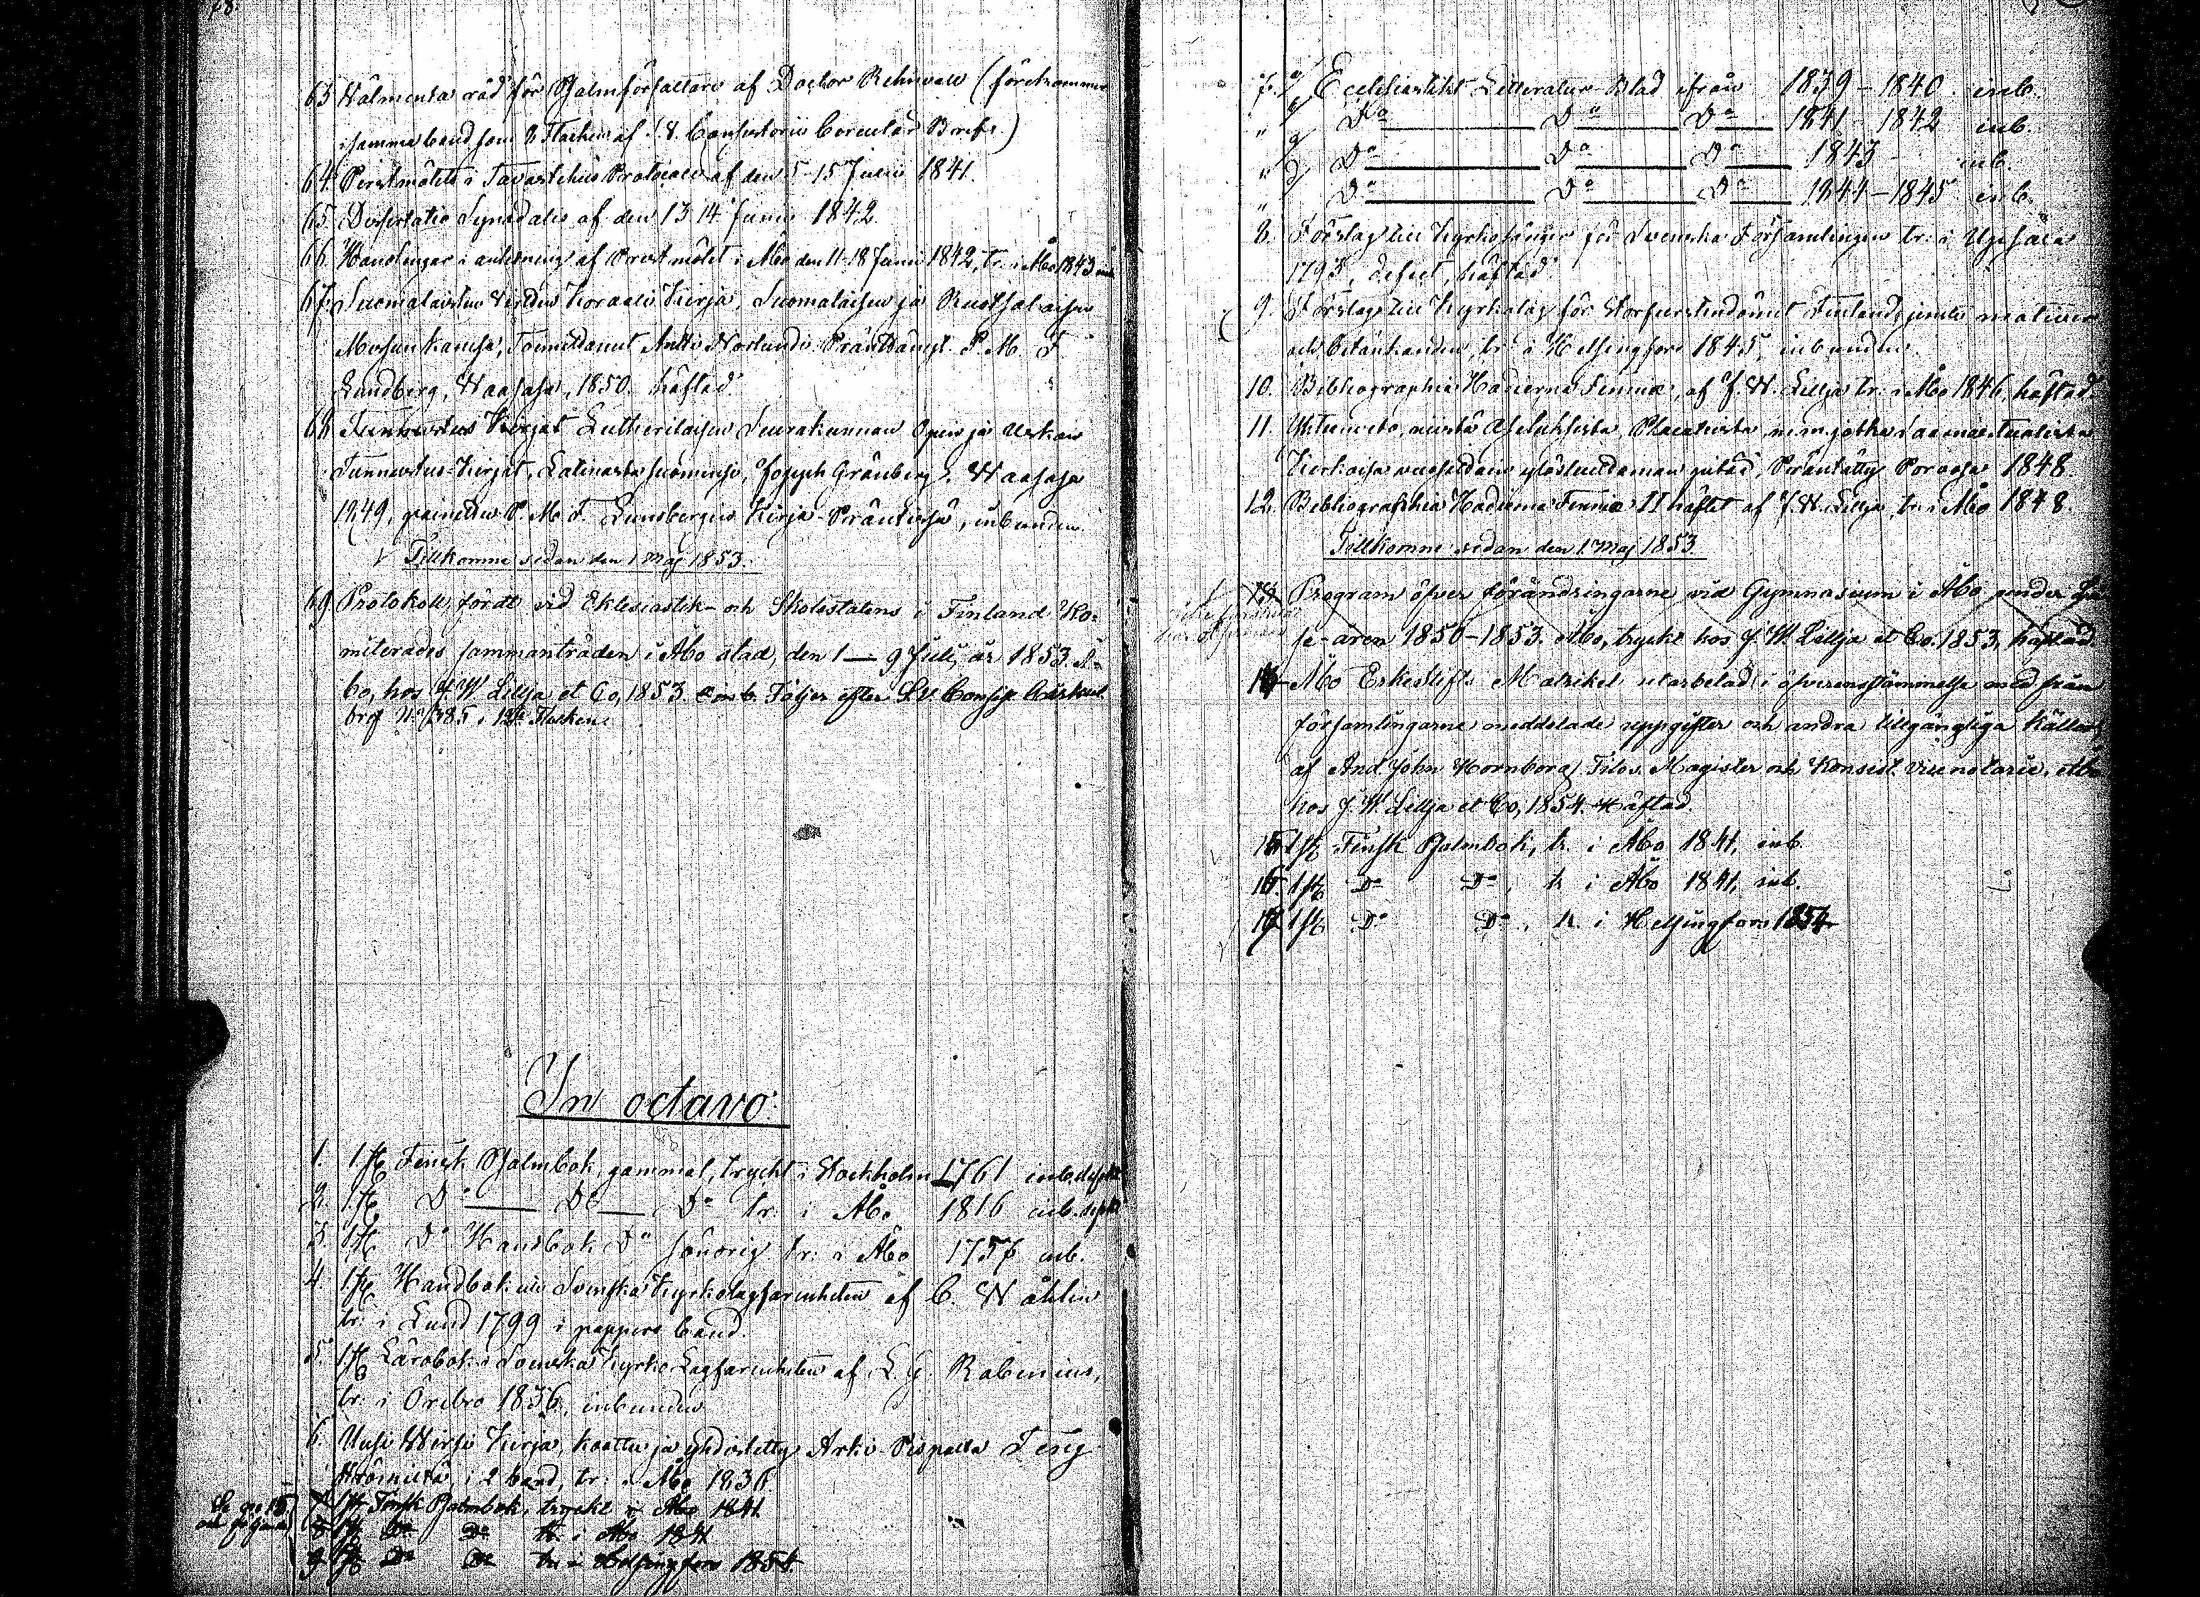 78.
63 Wälmenta råd för Psalmförfattare af Doctor Rehnwall (förekommer
i samma band som 2 Flocken af S. V. Consistorii Circulär Bref.)
64. Prestmötets i Tavastehus Protocoll af den 5-15 Junii 1841.
65. Dissertatio Synodalis af den 13 14 Junii 1842.
66. Handlingar i anledning af Prest mötet i Åbo den 11-18 Junii 1842, tr. i Åbo 1843 inb
67. Suomalaisten Virtten Koraali Kirja, Suomalaisen ja Ruotsalaisen
kanssa, Toimittanut Antti Norlundi Präntätänyt P. M. F.
Lundberg, Waasasa, 1850. häftad.
68. Tunnustus Kirjat Lutherilaisen Seurakunnan Opin ja Uskon
Tunnustus-Kirjat, Latinasta suominnt, Joseph Grönberg. Waasasa
1849, painettu P. M. F. Lundbergin Kirja-Präntissä, inbunden
Tillkomne sedan den 1 Maj 1853.
69 Protokoll, fördt vid Eklesiastik- och Skolestatens i Finland Ko-
miterades sammanträden i Åbo stad, den 1 — 9 Juli, år 1853. Å-
bo, hos J. W. Lillja et Co, 1853. inb. Följer efter S. V. Consist. Cirkulär
bref No 385, i 12te Flocken.
In octavo.
1. 1 st Finsk Psalmbok, gammal, tryckt i Stockholm 1761 inb. defekt
2. 1 st Do Do Do tr: i Åbo 1816 inb. defekt
3. 1 st Do Handbok Do sönorig tr: i Åbo 1757 inb.
4. 1 st Handbok uti Svenska Kyrkolagfarenheten af C. Wåhlin
tr: i Lund 1799 i pappers band.
5. 1 st Lärobok i Svenska Kyrko Lagfarenheten af L. G. Rabenius,
tr: i Örebro 1836, inbunden
6. Uusi Wirsi Kirja, koottu ja yhdistetty Arki-Pispalta Teng-
strömiltä, i 2 band, tr: i Åbo 1836.
Se no 15 och följande
7 1 st Finsk Psalmbok, tryckt i Åbo 1841.
8 1 st Do Do tr. i Åbo 1841
9 1 st Do Do tr. i Helsingfors 1854.
7. Ecclesiastikt Litteratur-Blad ifrån 1839-1840. inb.
" Do Do Do 1841-1842 inb.
" Do Do Do 1843- inb.
" Do Do Do 1844-1845 inb.
8. Förslag till Kyrkosånger för Svenska Församlingen tr: i Upsala
1793, defect, häftad
9. Förslag till Kyrkolag för Storfurstendömet Finland, jemte motiver
och betänkanden, tr: i Helsingfors 1845, inbunden.
10. Bibliographia Hodierna Fennica, af J. W. Lillja tr: i Åbo 1846, häftad
11. Ulosveto, niistä Asetuksista, Placatista, m.m. jotka Saarnastuolista
Kirkoissa vuosittain ylösluettaman pitää, Präntätty Porvossa 1848.
12. Bibliographia Hodierna Fennica II häftet af J. W. Lillja, tr. i Åbo 1848.
Tillkomne sedan den 1 Maj 1853.
13. Program öfver förändringarne vid Gymnasium i Åbo under Lä-
se-åren 1850-1853. Åbo, tryckt hos J. W. Lillja et Co. 1853, häftad.
14 Åbo Erkestifts Matrikel utarbetad i öfverensstämmelse med från
församlingarne meddelade uppgifter och andra tillgängliga källor,
af And. John Hornborg, Filos. Magister och Konsist. Vicenotarie. Åbo
hos J. W. Lillja et Co, 1854. Häftad.
15 1 st Finsk Psalmbok, tr. i Åbo 1841, inb.
16. 1 st Do Do, tr i Åbo 1841, inb.
17 1 st Do Do, tr. i Helsingfors 1854